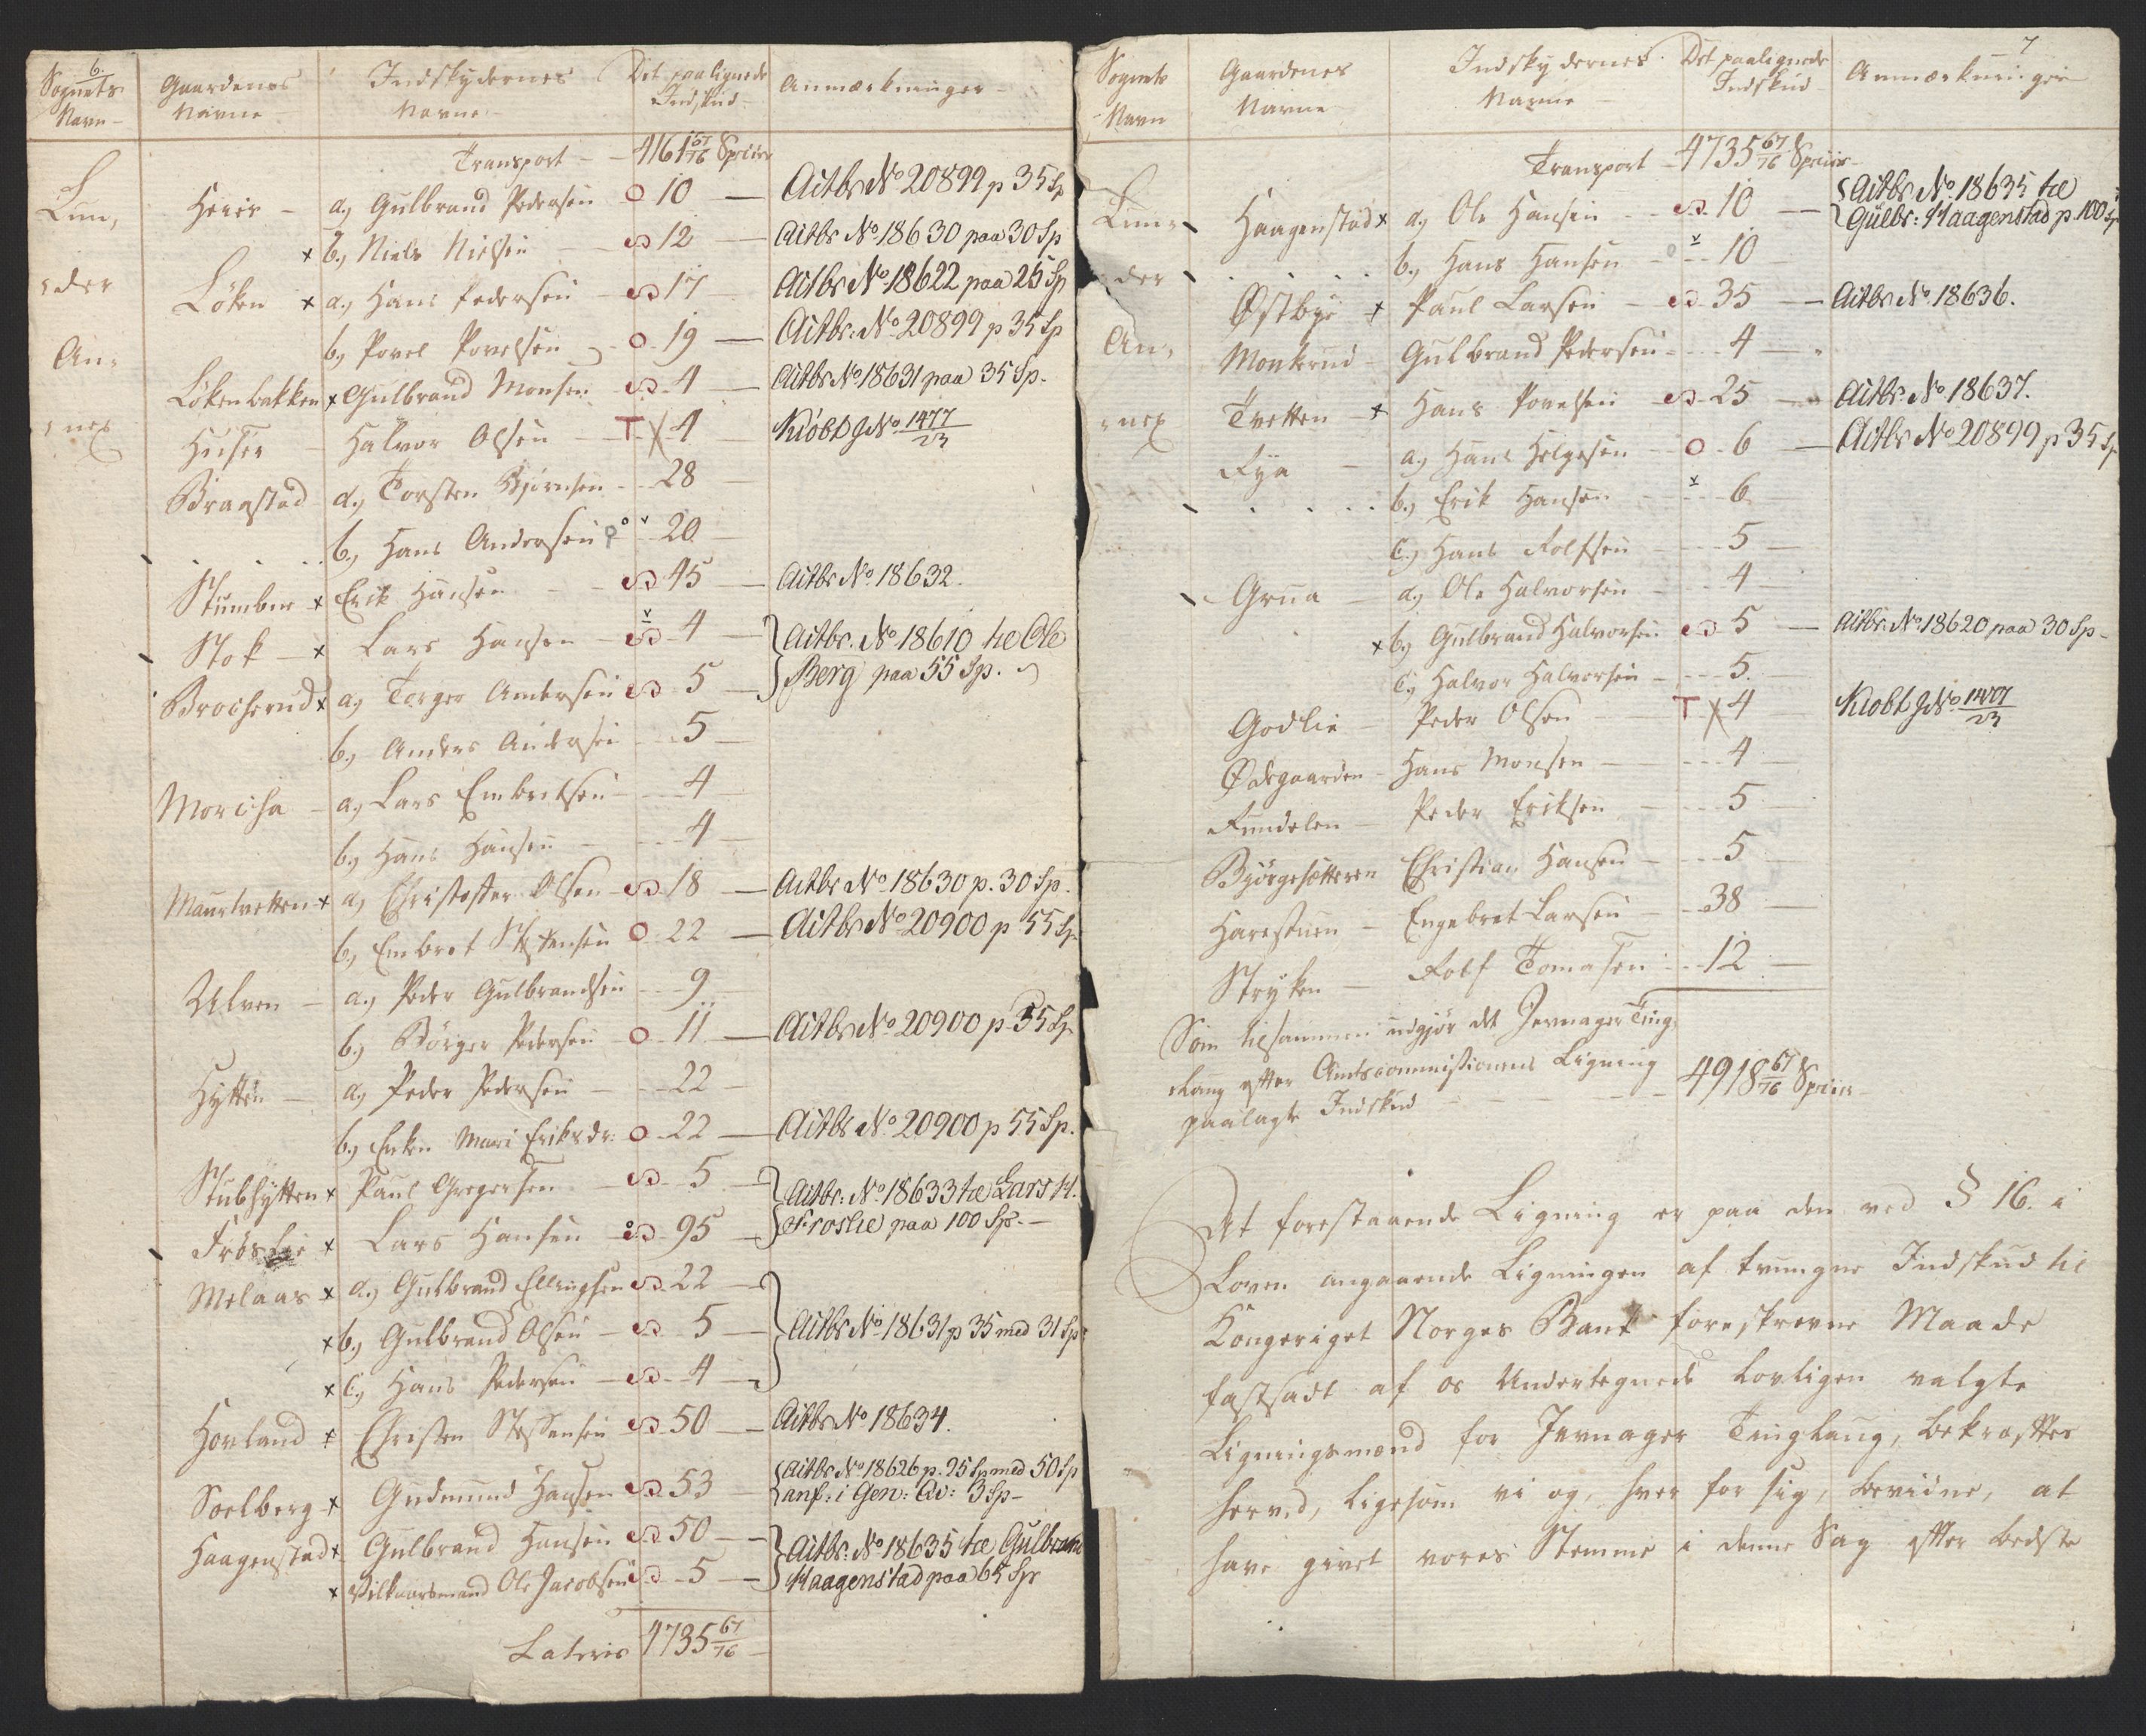 6.
Sognets Navn
Gaardenes Navne
Indskydernes Navne
Det paalignede Indskud
Anmærkninger
Transport 4161 67/76 Species
Lun,
:der
An,
:nex
Heier a.) Gulbrand Pedersen O 10 Actbr No 20899 p 35 Sp
x b.) Niels Nielsen 12 Actbr No 18630 paa 30 Sp
Løken x a.) Hans Pedersen 17 Actbr No 18622 paa 25 Sp
b.) Povel Povelsen O 19 Actbr. No 20899 p 35 Sp
Løkenbakken x Gulbrand Monsen 4 Actbr No 18631 paa 35 Sp.
Huser Halvor Olsen T X 4 Kiøbt No 1477/23
Braastad a.) Torsten Bjørnsen 28
b.) Hans Andersen 20
Stumber x Erik Hansen 45 Actbr No 18632.
Stok x Lars Hansen 4 Actbr. No 18610 til Ole
Brocherud x a.) Torger Andersen 5 Berg paa 55 Sp.
b.) Anders Andersen 5
Morisha a.) Lars Embretsen 4
b.) Hans Hansen 4
Maurtvetten x a.) Christoffer Olsen 18 Actbr No 18630 p. 30 Sp.
b.) Embret Steffensen O 22 Actbr No 20900 p 55 Sp
Ulven a.) Peder Gulbrandsen 9
b.) Børger Pedersen O 11 Actbr No 20900 p 55 Sp
Hytten a.) Peder Pedersen 22
b.) Enken Mari Eriksdr: O 22 Actbr No 20900 p 55 Sp.
Stubhytten x Paul Gregersen 5 Actbr: No 18633 til Lars H.
Frøslie x Lars Hansen 95 Froslie paa 100 Sp.
Melaas x a.) Gulbrand Ellingsen 22
x b.) Gulbrand Olsen 5 Actbr No 18631 p 35 med 31 Sp
x c.) Hans Pedersen 4
Hovland x Christen Steffensen 50 Actbr No 18634.
Soelberg x Gudmund Hansen 53 Actbr No 18626 p. 95 Sp med 50 Sp
anf: i Gen: Qv: 3 Sp
Haagenstad x Gulbrand Hansen 50 Actbr: No 18635 til Gulbrand
x Vilkaarsmand Ole Jacobsen 5 Haagenstad paa 65 Sp
Lateris 4735 67/76
7
Sognets Navn
Gaardenes Navne
Indskydernes Navne
Det paalignede Indskud
Anmærkninger
Transport 4735 67/76 Species
Lun:
:der
An,
:nex
Haagenstad x a.) Ole Hansen 10 Actbr No 18635 til
Gulbr: Haagenstad p. 100 Sp
b.) Hans Hansen 10
Østbye x Paul Larsen 35 Actbr No 18636.
Monkerud Gulbrand Pedersen 4
Tvetten x Hans Povelsen 25 Actbr No 18637.
Rya a.) Hans Helgesen O 6 Actbr No 20899 p 35 Sp
b.) Erik Hansen 6
c.) Hans Rolfsen 5
Grua a.) Ole Halvorsen 4
x b.) Gulbrand Halvorsen 5 Actbr: No 18620 paa 30 Sp
c.) Halvor Halvorsen 5
Godlie Peder Olsen T X 4 Kiobt No 1477/23
Ødegaarden Hans Monsen 4
Rundelen Peder Eriksen 5
Bjørgesetteren Christian Hansen 5
Harestuen Engebret Larsen 38
Stryken Rolf Tomasen 12
Som tilsammen udgjør det Jevnager Ting-
laug efter Amtscommissionens Ligning
paalagte Indskud 4918 67/76 Species
At forestaaende Ligning er paa den ved § 16. i
Loven angaaende Ligningen af tvungne Indskud til
Kongeriget Norges Bank foreskrevne Maade
fastsadt af os Undertegnede lovligen valgte
Ligningsmænd for Jevnager Tinglaug, bekræftes
herved, ligesom vi og, hver for sig, bevidne, at
have givet vores Stemme i denne Sag efter bedste